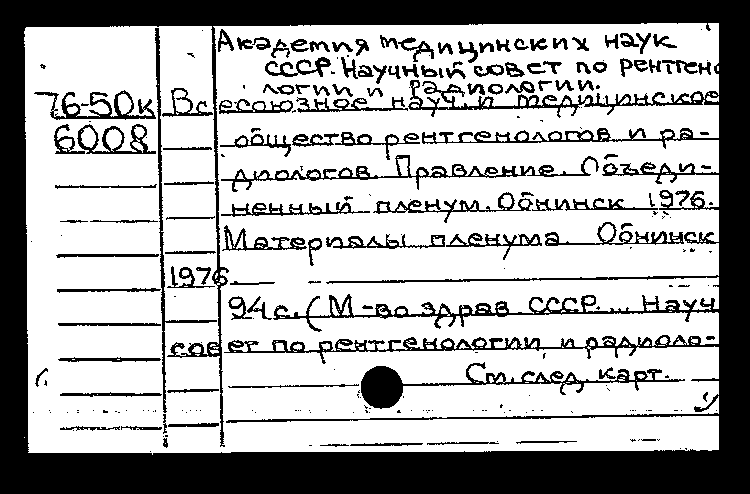 Академия медицинских наук
СССР. Научный совет по рентгено
логии и радиологии.
76-50к Всесоюзное науч. и медицинское
6008 общество рентгенологов и ра-
диологов. Правление. Объеди-
ненный пленум. Обнинск 1976.
Материалы пленума. Обнинск
1976.
94с. (М-во здрав СССР... Науч
совет по рентгенологии и радиоло-
См. след. карт.